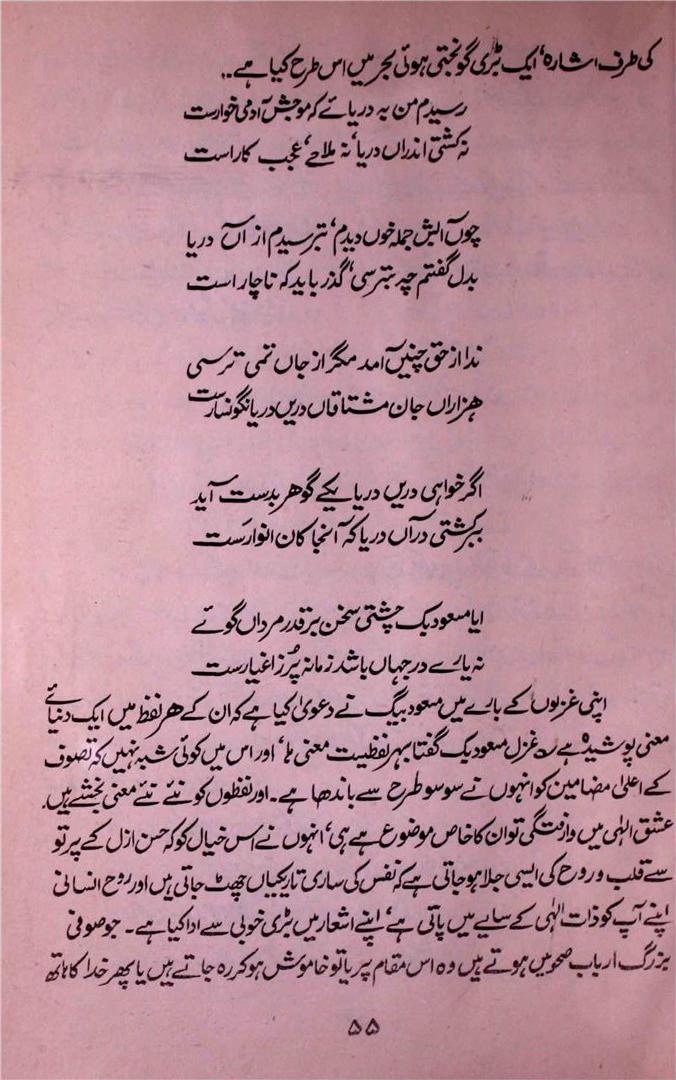 کی طرف اشارہ، ایک بڑی گونجتی ہوئی بحر میں اس طرح کیا ہے۔۔
رسیدم من بہ دریائے کہ موجش آدمی خوارست
نہ کشتی اندراں دریا، نہ ملاحے، عجب کار است
چوں آبش جملہ خوں دیدم، بترسیدم از آں دریا
بدل گفتم چہ بترسی، گذر باید کہ ناچار است
ندا از حق چنیں آمد مگر از جاں نمی ترسی
ھزاراں جان مشتاقاں دریں دریا نگونسارست
اگر خواہی دریں دریا یکے گوھر بدست آید
ببر کشتی درآں دریا کہ آنجا کان انوارست
ایا مسعود بک چشتی سخن بر قدر مرداں گوئے
نہ یارے در جہاں باشد زمانہ پُر ز اغیارست
اپنی غزلوں کے بارے میں مسعود بیگ نے دعویٰ کیا ہے کہ ان کے ھر لفظ میں ایک دنیائے
معنی پوشیدہ ہے ؎ غزل مسعود بک گفتا بہر لفظیست معنی ہا، اور اس میں کوئی شبہ نہیں کہ تصوف
کے اعلیٰ مضامین کو انہوں نے سو سو طرح سے باندھا ہے۔ اور لفظوں کو نئے نئے معنی بخشے ہیں۔
عشق الٰہی میں وارفتگی تو ان کا خاص موضوع ہے ہی، انہوں نے اس خیال کو کہ حسن ازل کے پرتو
سے قلب و روح کی ایسی جلا ہو جاتی ہے کہ نفس کی ساری تاریکیاں چھٹ جاتی ہیں اور روح انسانی
اپنے آپ کو ذات الٰہی کے سایے میں پاتی ہے، اپنے اشعار میں بڑی خوبی سے ادا کیا ہے۔ جو صوفی
بزرگ ارباب صحو میں ہوتے ہیں وہ اس مقام پر یا تو خاموش ہو کر رہ جاتے ہیں یا پھر خدا کا ہاتھ
۵۵